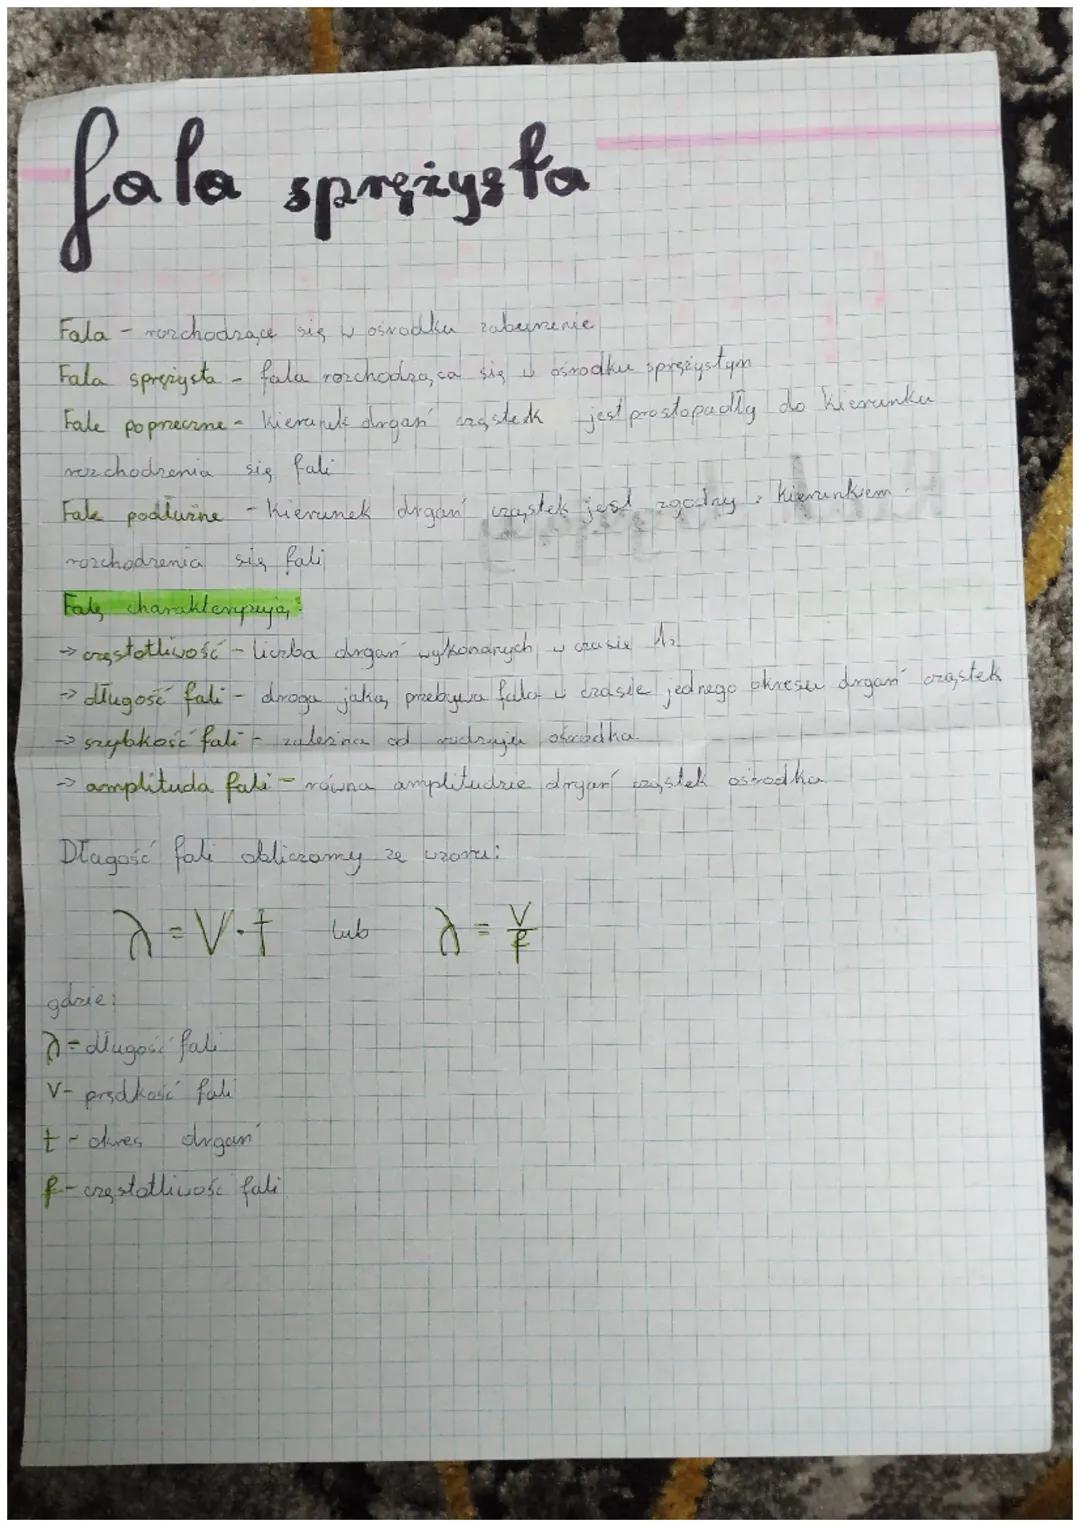 fala sprężysta
Fala - rozchodzące się w ośrodku zaburzenie
Fala sprężysta - fala rozchodząca się w ośrodku sprężystym
Fale poprzeczne - kierunek drgań cząstek jest prostopadły do kierunku
rozchodzenia się fali
Fale podłużne - kierunek drgań cząstek jest zgodny z kierunkiem
rozchodzenia się fali
Falę charakteryzują:
→ częstotliwość - liczba drgań wykonanych w czasie 1s
→ długość fali - droga jaką przebywa fala w czasie jednego okresu drgań cząstek
→ szybkość fali - zależna od rodzaju ośrodka
→ amplituda fali - równa amplitudzie drgań cząstek ośrodka
Długość fali obliczamy ze wzoru:
λ = V · t lub λ = V/f
gdzie:
λ = długość fali
V - prędkość fali
t - okres drgań
f - częstotliwość fali